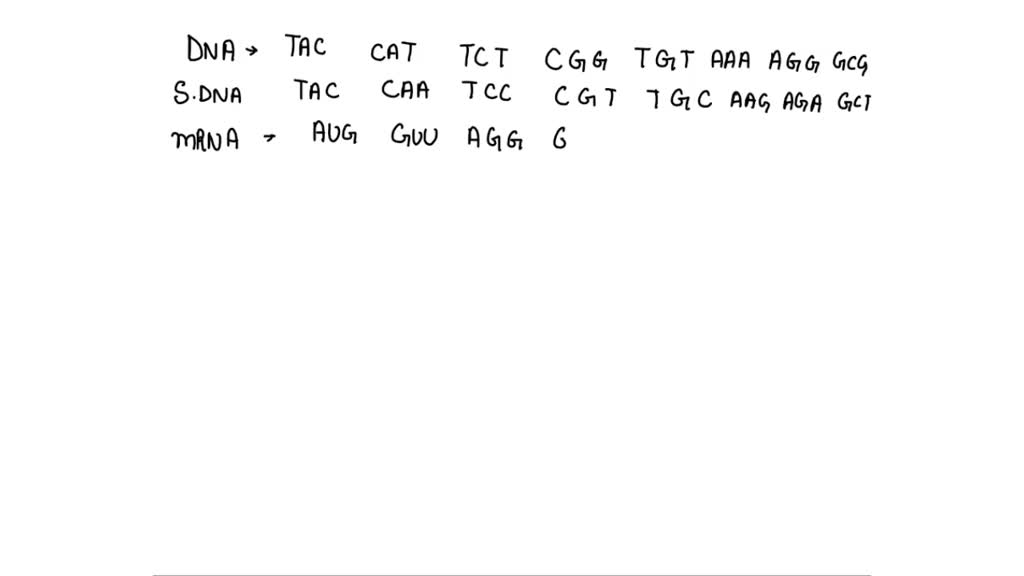 DNA → TAC CAT TCT CGG TGT AAA AGG GCG
S.DNA TAC CAA TCC CGT TGC AAG AGA GCT
mRNA → AUG GUU AGG G